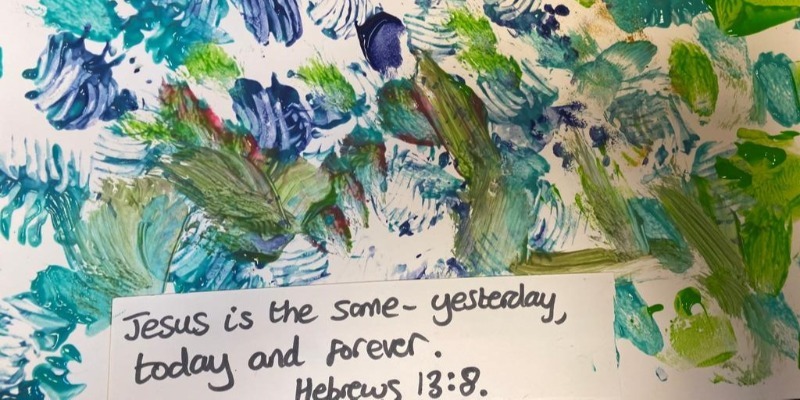 Jesus is the same- yesterday,
today and forever.
Hebrews 13:8.